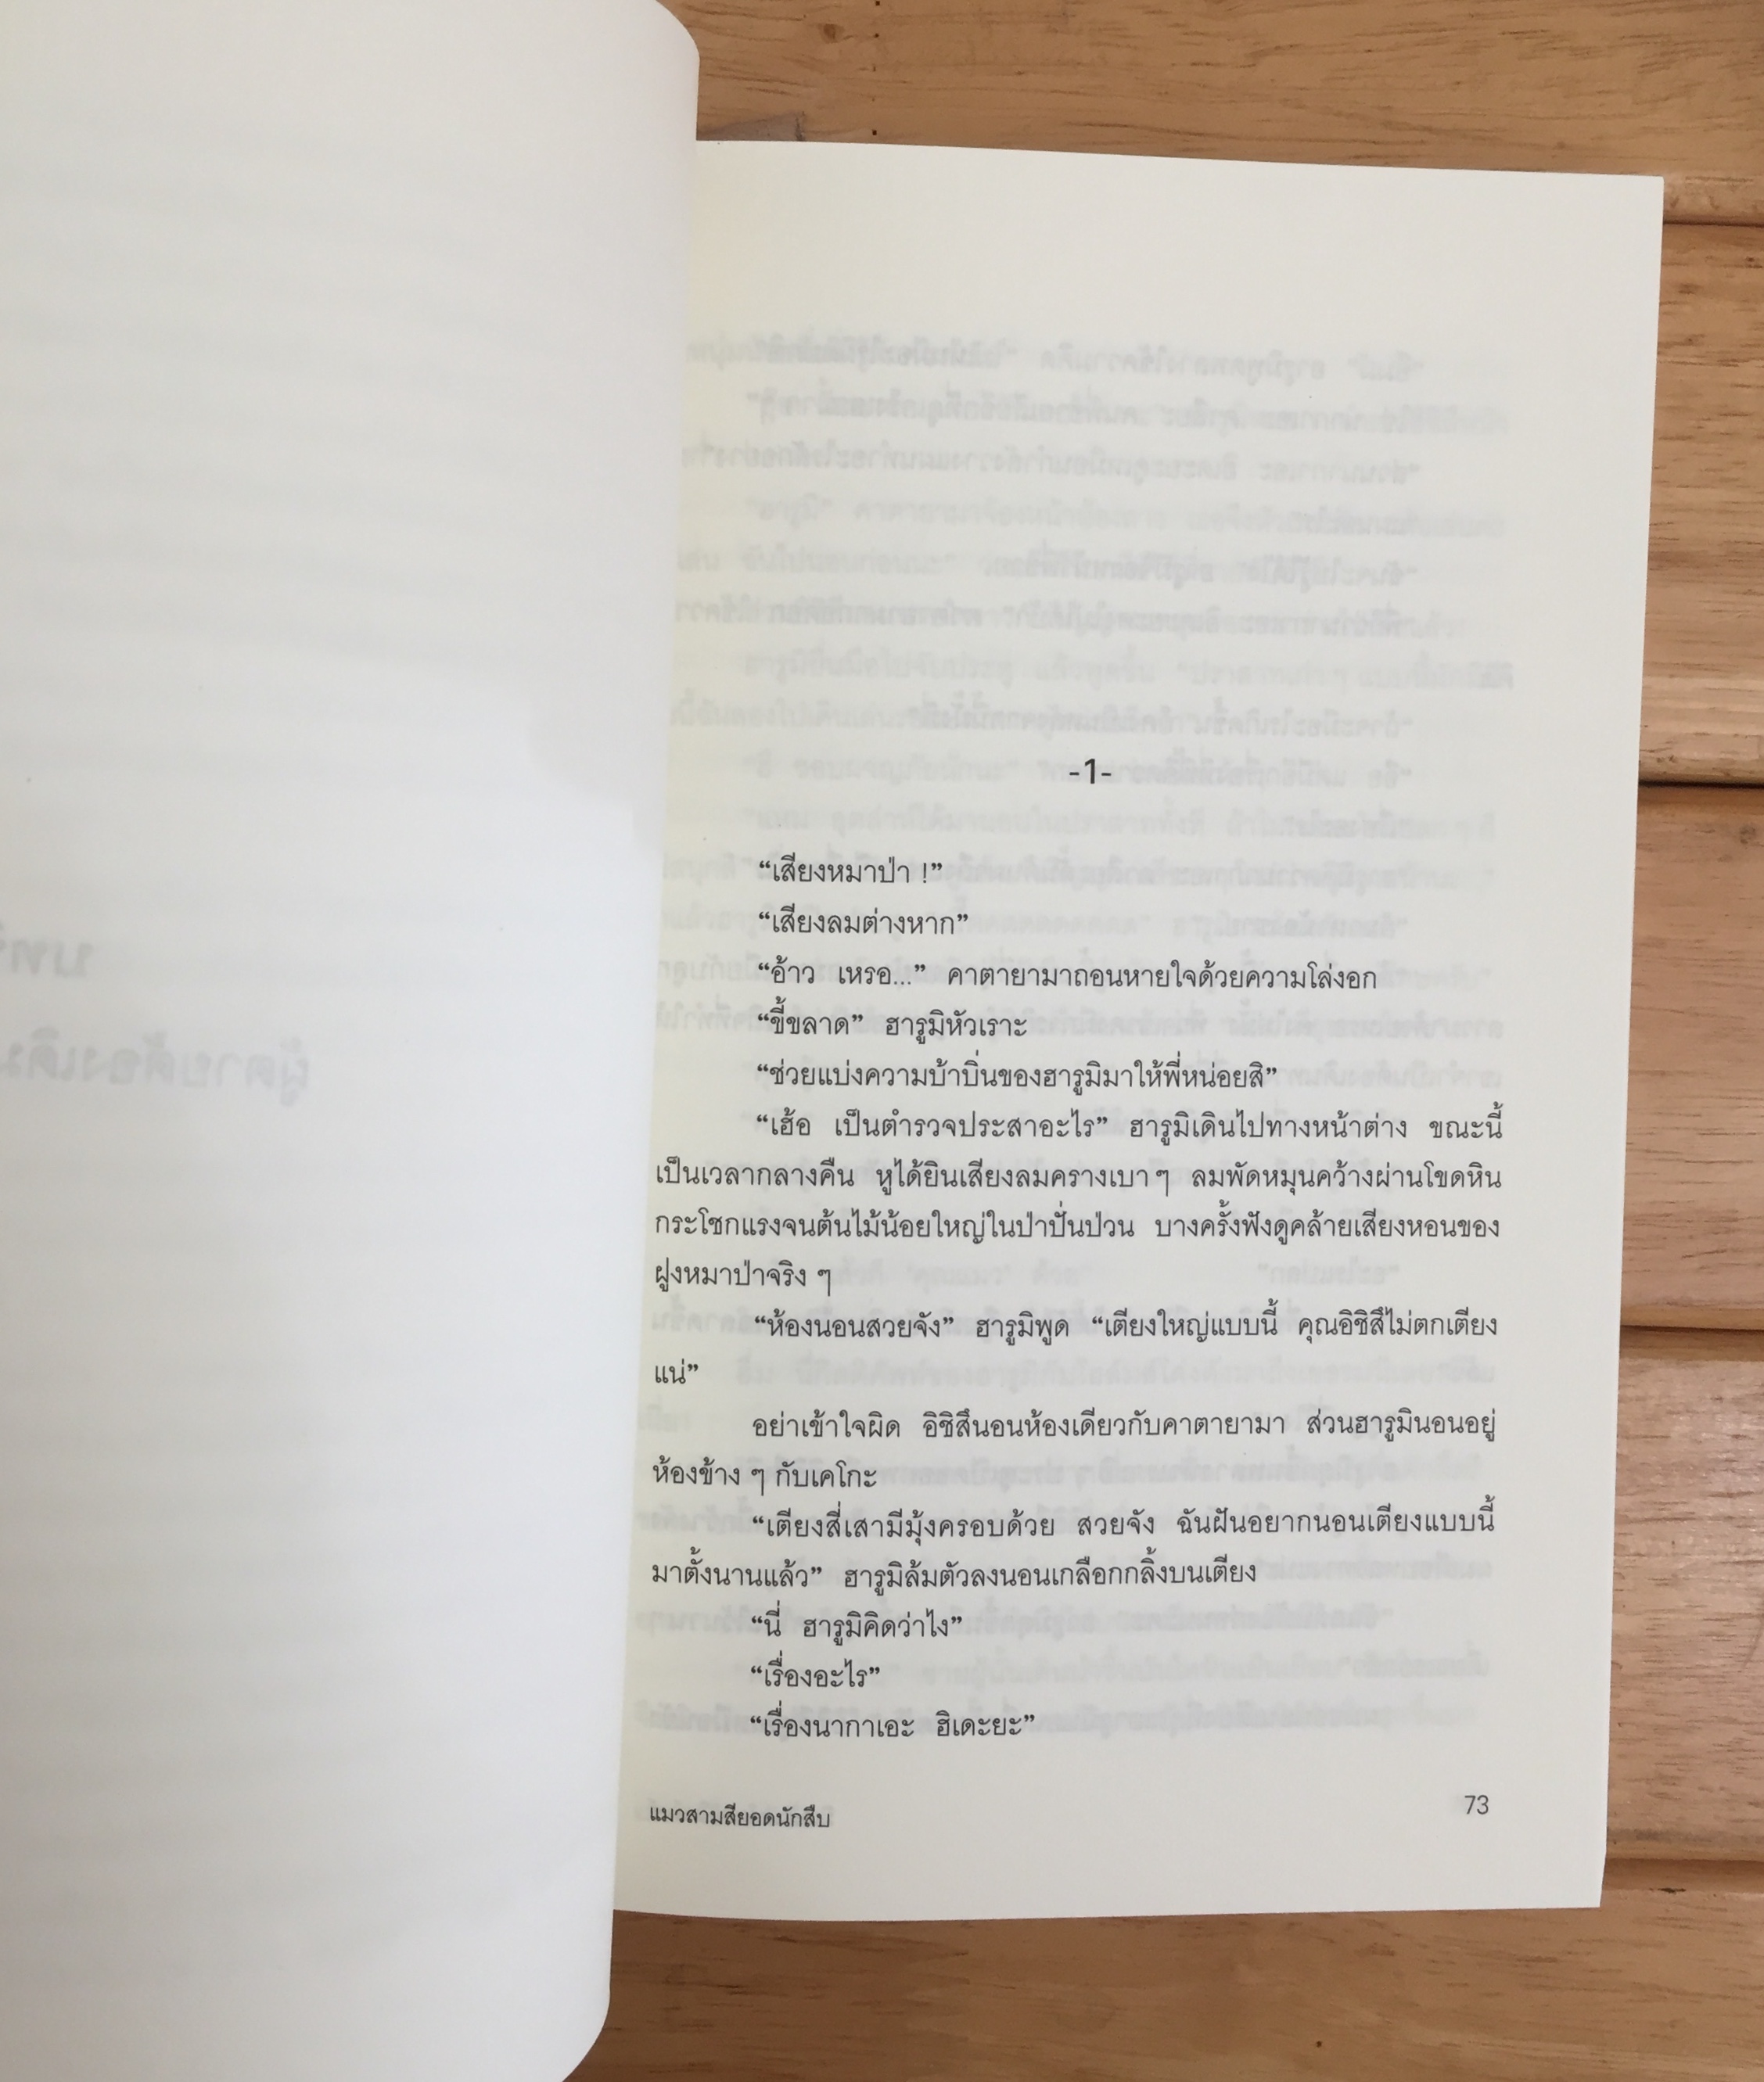 -1-
“เสียงหมาป่า !”
“เสียงลมต่างหาก”
“อ้าว เหรอ...” คาตายามาถอนหายใจด้วยความโล่งอก
“ขี้ขลาด” ฮารูมิหัวเราะ
“ช่วยแบ่งความบ้าบิ่นของฮารูมิมาให้พี่หน่อยสิ”
“เฮ้อ เป็นตำรวจประสาอะไร” ฮารูมิเดินไปทางหน้าต่าง ขณะนี้
เป็นเวลากลางคืน หูได้ยินเสียงลมครางเบาๆ ลมพัดหมุนคว้างผ่านโขดหิน
กระโชกแรงจนต้นไม้น้อยใหญ่ในป่าปั่นป่วน บางครั้งฟังดูคล้ายเสียงหอนของ
ฝูงหมาป่าจริง ๆ
“ห้องนอนสวยจัง” ฮารูมิพูด “เตียงใหญ่แบบนี้ คุณอิชิสึไม่ตกเตียง
แน่”
อย่าเข้าใจผิด อิชิสึนอนห้องเดียวกับคาตายามา ส่วนฮารูมินอนอยู่
ห้องข้าง ๆ กับเคโกะ
“เตียงสี่เสามีมุ้งครอบด้วย สวยจัง ฉันฝันอยากนอนเตียงแบบนี้
มาตั้งนานแล้ว” ฮารูมิล้มตัวลงนอนเกลือกกลิ้งบนเตียง
“นี่ ฮารูมิคิดว่าไง”
“เรื่องอะไร”
“เรื่องนากาเอะ ฮิเดะยะ”
แมวสามสียอดนักสืบ
73